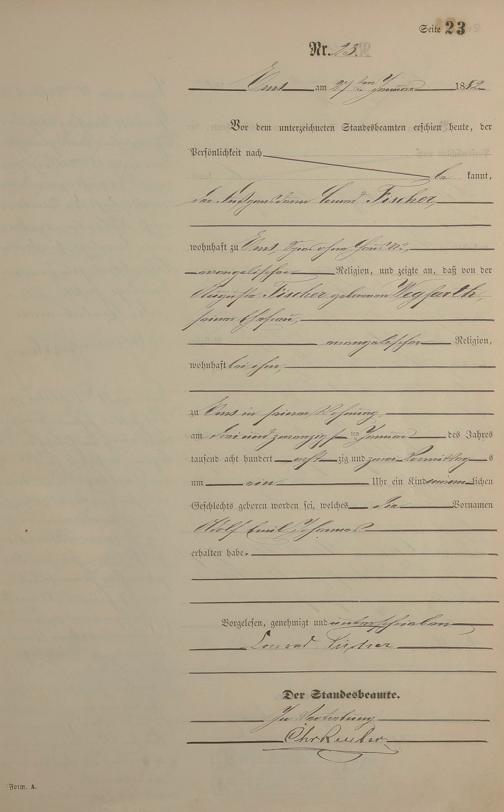 Seite 23
Nr. 23.
Ems am 27ten Januar 1882
Vor dem unterzeichneten Standesbeamten erschien heute, der
Persönlichkeit nach
be kannt,
der Conrad Fischer,
wohnhaft zu Ems,
evangelischer Religion, und zeigte an, daß von der
Augusta Fischer geborenen Wegfarth,
seiner Ehefrau,
evangelischer Religion,
wohnhaft bei ihm,
zu Ems in seiner Wohnung,
am drei und zwanzigsten Januar des Jahres
tausend acht hundert acht zig und zwei Vormittag s
um ein Uhr ein Kind männ lichen
Geschlechts geboren worden sei, welches die Vornamen
Adolf Emil Johannes
erhalten habe.
Vorgelesen, genehmigt und unterschrieben
Conrad Fischer
Der Standesbeamte.
In Vertretung
Form. A.